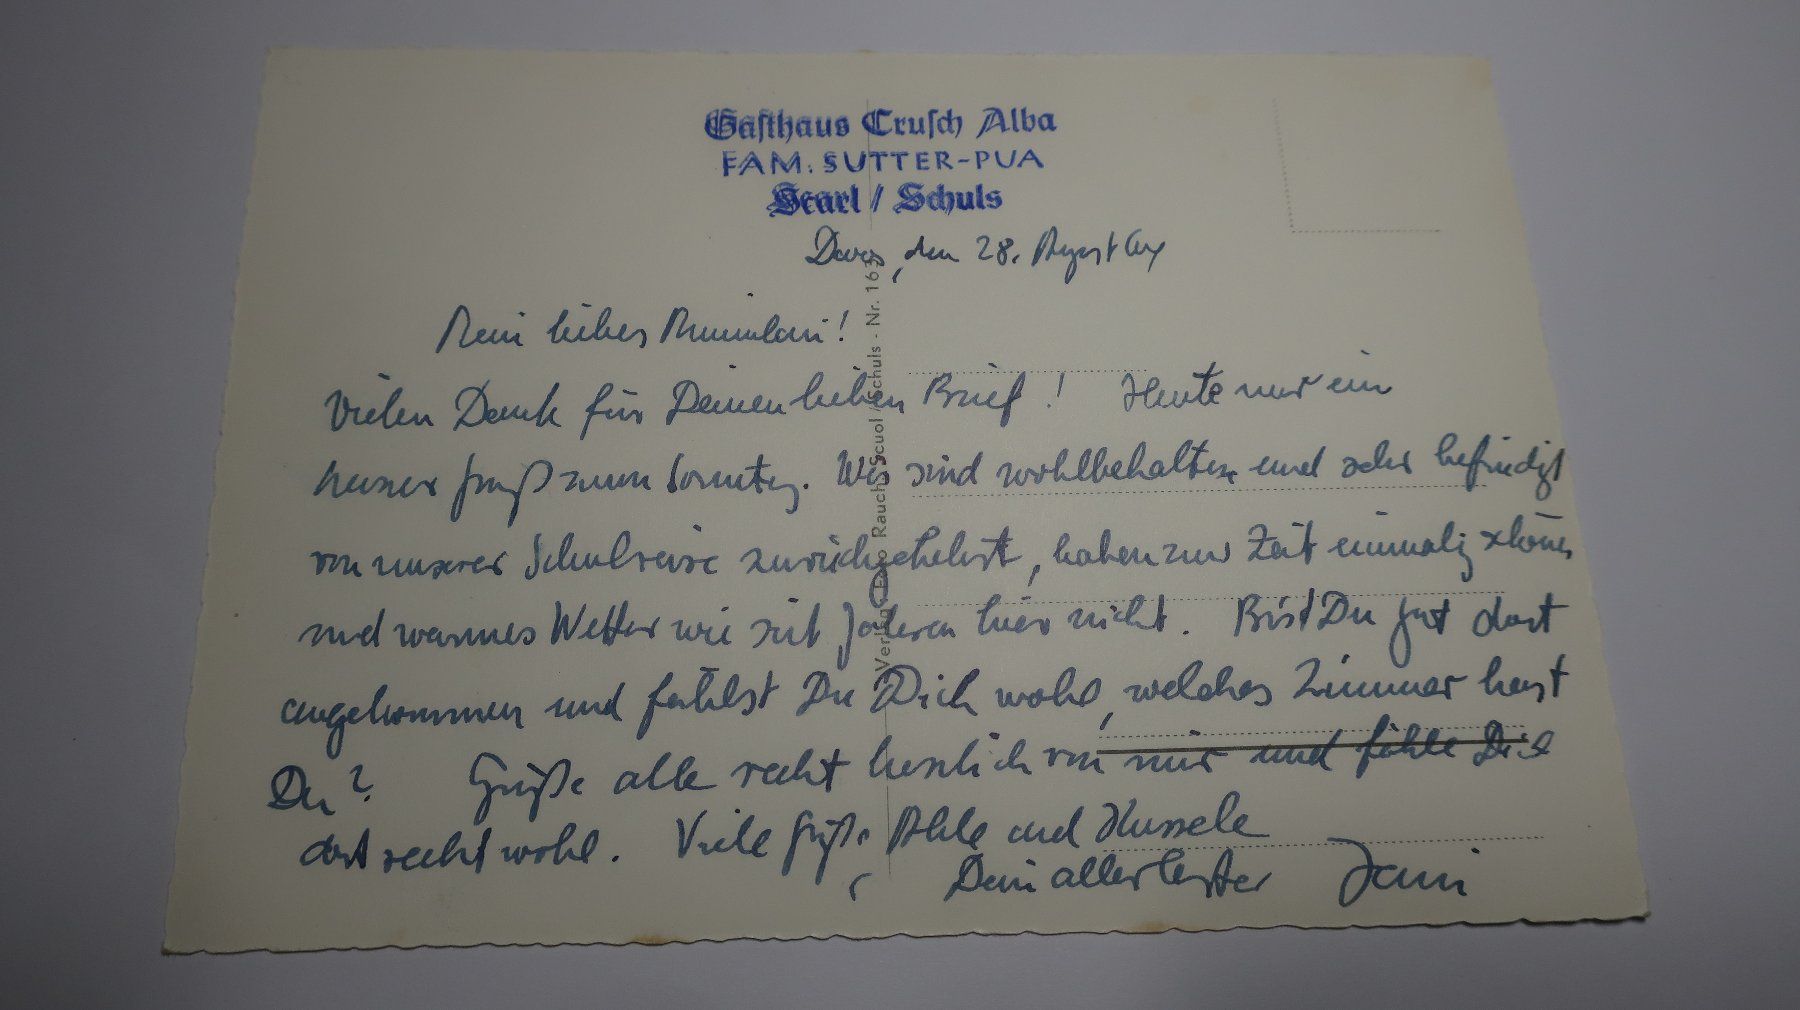 Gasthaus Crusch Alba
FAM. SUTTER-PUA
Scarl / Schuls
Davos, den 28. August
Mein liebes
Vielen Dank für Deinen lieben Brief! Heute nur ein
kurzer Gruß zum Sonntag. Wir sind wohlbehalten und sehr befriedigt
von unserer Schulreise zurückgekehrt, haben zur Zeit einmalig schönes
und warmes Wetter wie seit Jahren hier nicht. Bist Du gut dort
angekommen und fühlst Du Dich wohl, welches Zimmer hast
Du? Grüße alle recht herzlich von mir und fühle Dich
dort recht wohl. Viele Grüße, und
Dein allerbester
Verlag Rauch Scuol / Schuls - Nr. 163